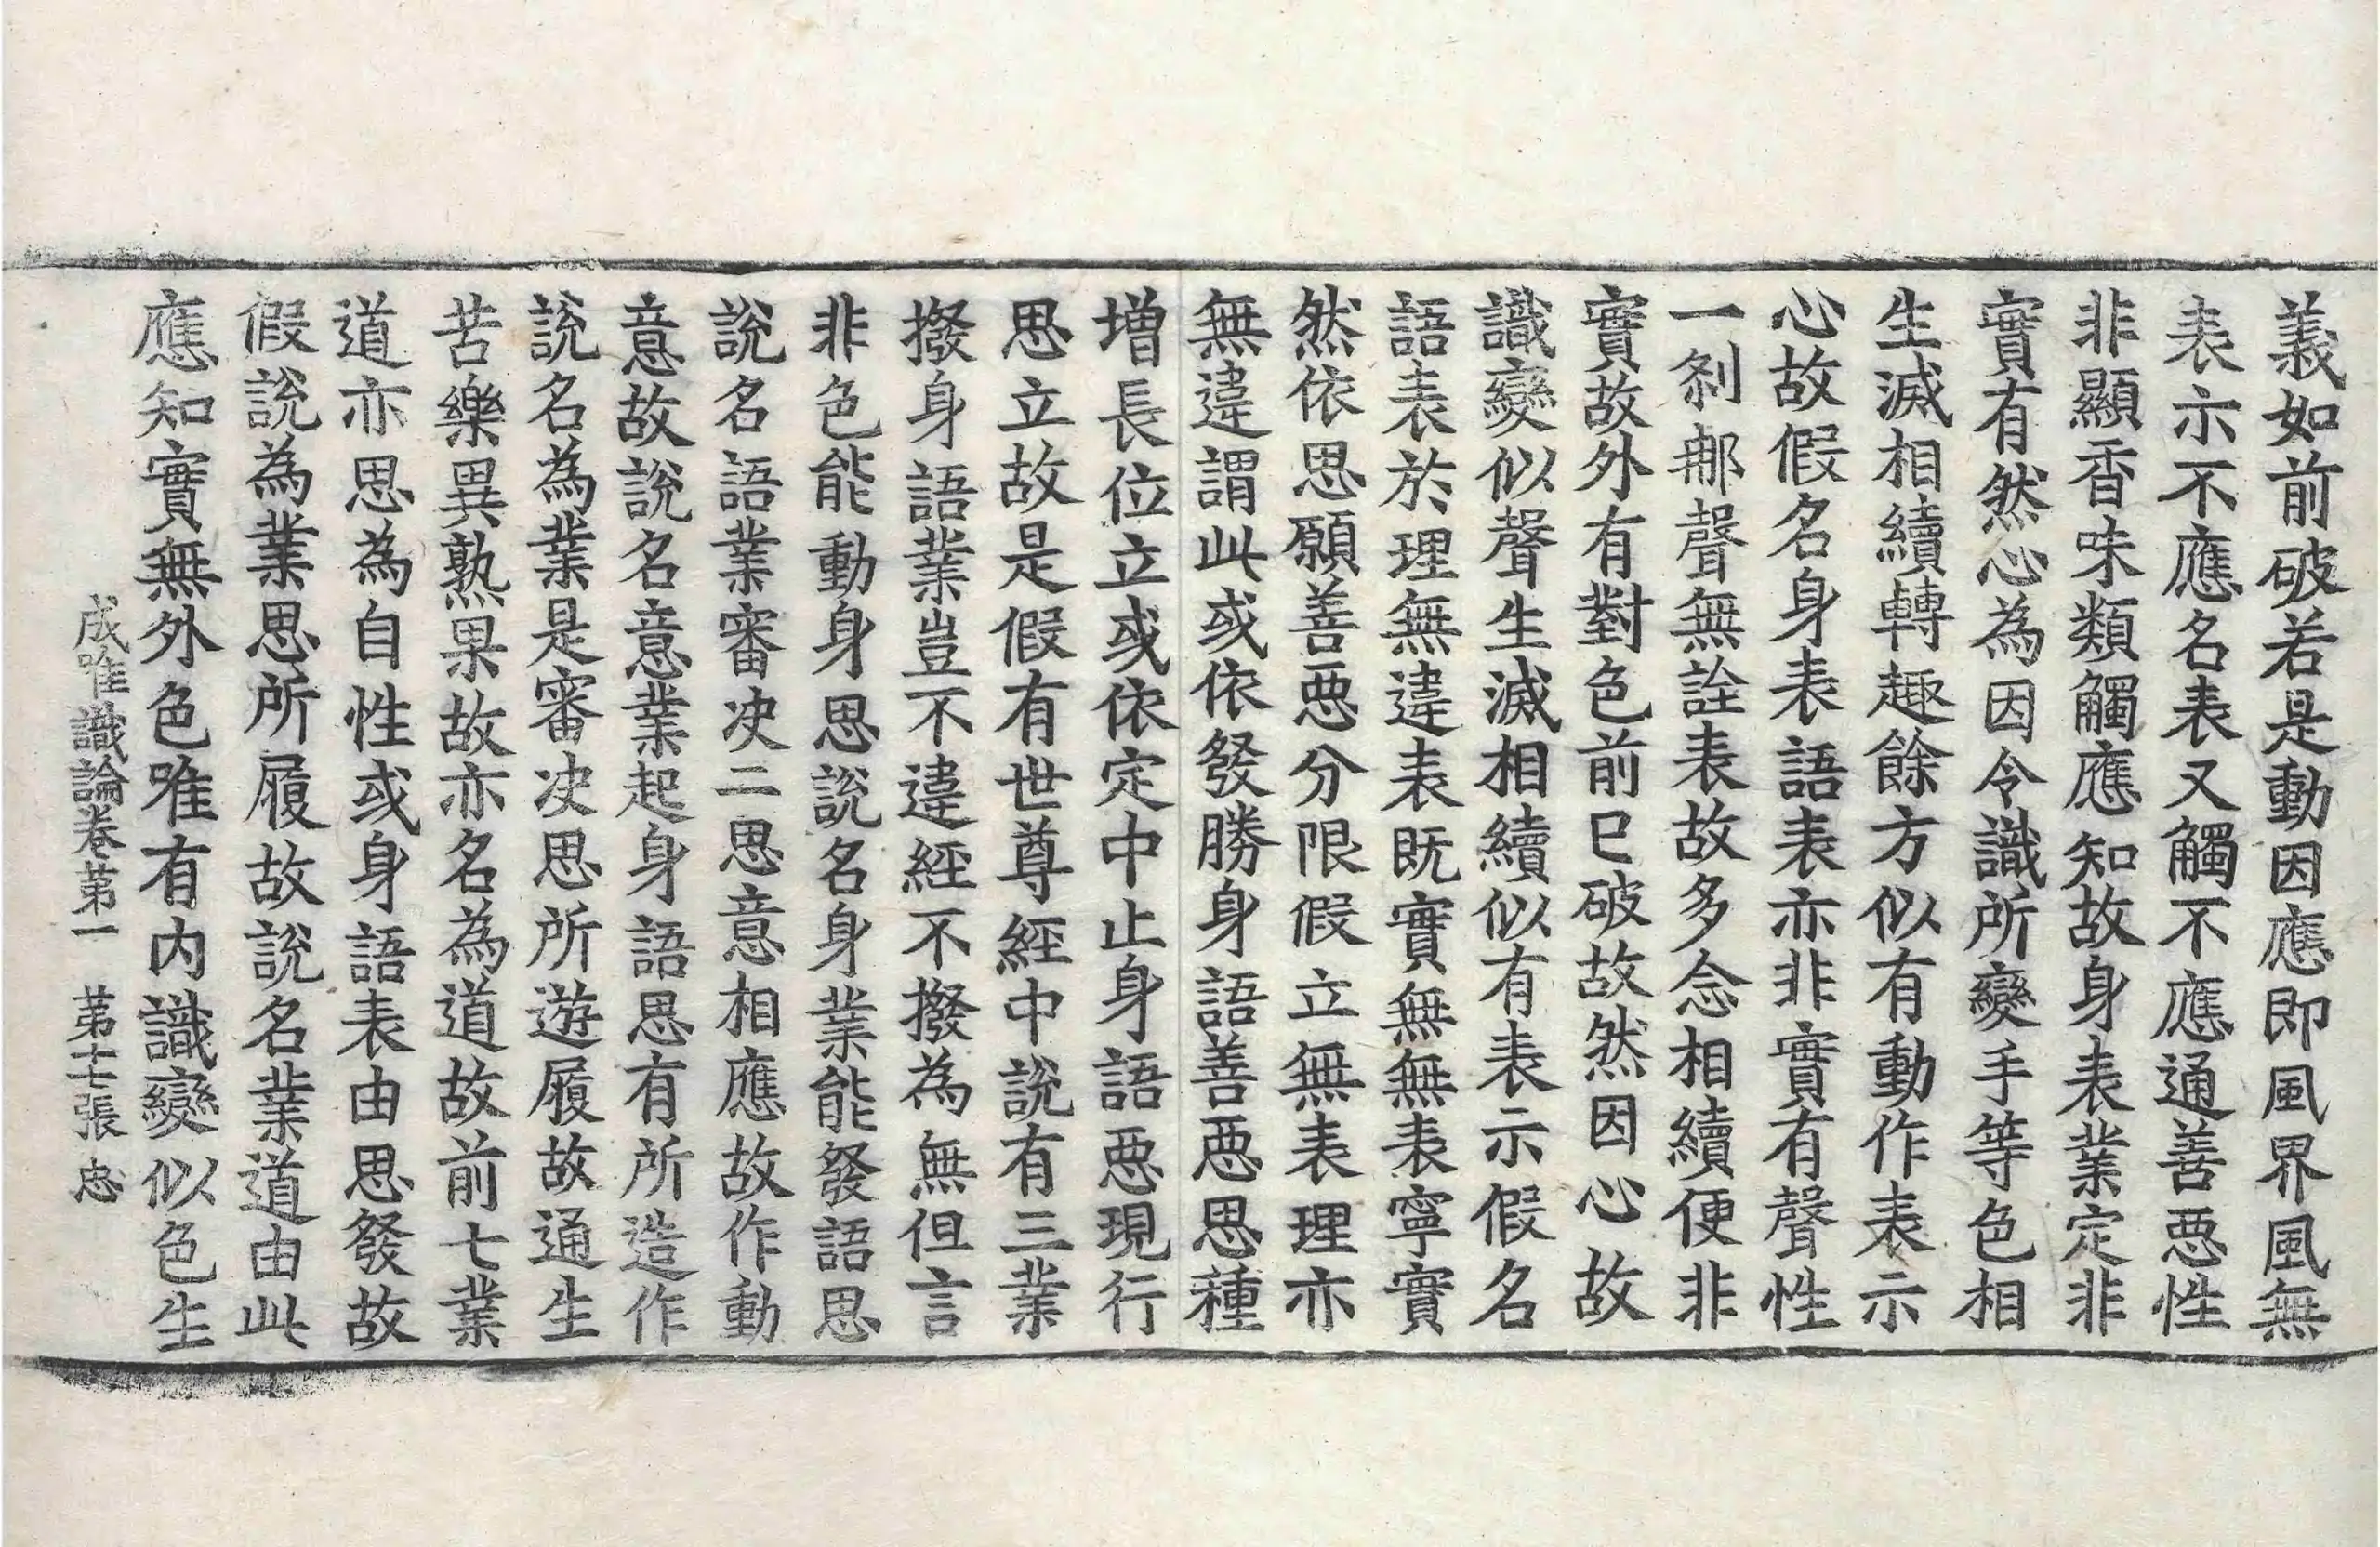 義如前破若是動因應即風界風無
表示不應名表又觸不應通善惡性
非顯香味類觸應知故身表業定非
實有然心為因令識所變手等色相
生滅相續轉趣餘方似有動作表示
心故假名身表語表亦非實有聲性
一剎那聲無詮表故多念相續便非
實故外有對色前已破故然因心故
識變似聲生滅相續似有表示假名
語表於理無違表既實無無表寧實
然依思願善惡分限假立無表理亦
無違謂此或依發勝身語善惡思種
增長位立或依定中止身語惡現行
思立故是假有世尊經中說有三業
撥身語業豈不違經不撥為無但言
非色能動身思說名身業能發語思
說名語業審決二思意相應故作動
意故說名意業起身語思有所造作
說名為業是審決思所遊履故通生
苦樂異熟果故亦名為道故前七業
道亦思為自性或身語表由思發故
假說為業思所履故說名業道由此
應知實無外色唯有內識變似色生
成唯識論卷第一　第十七張　忠